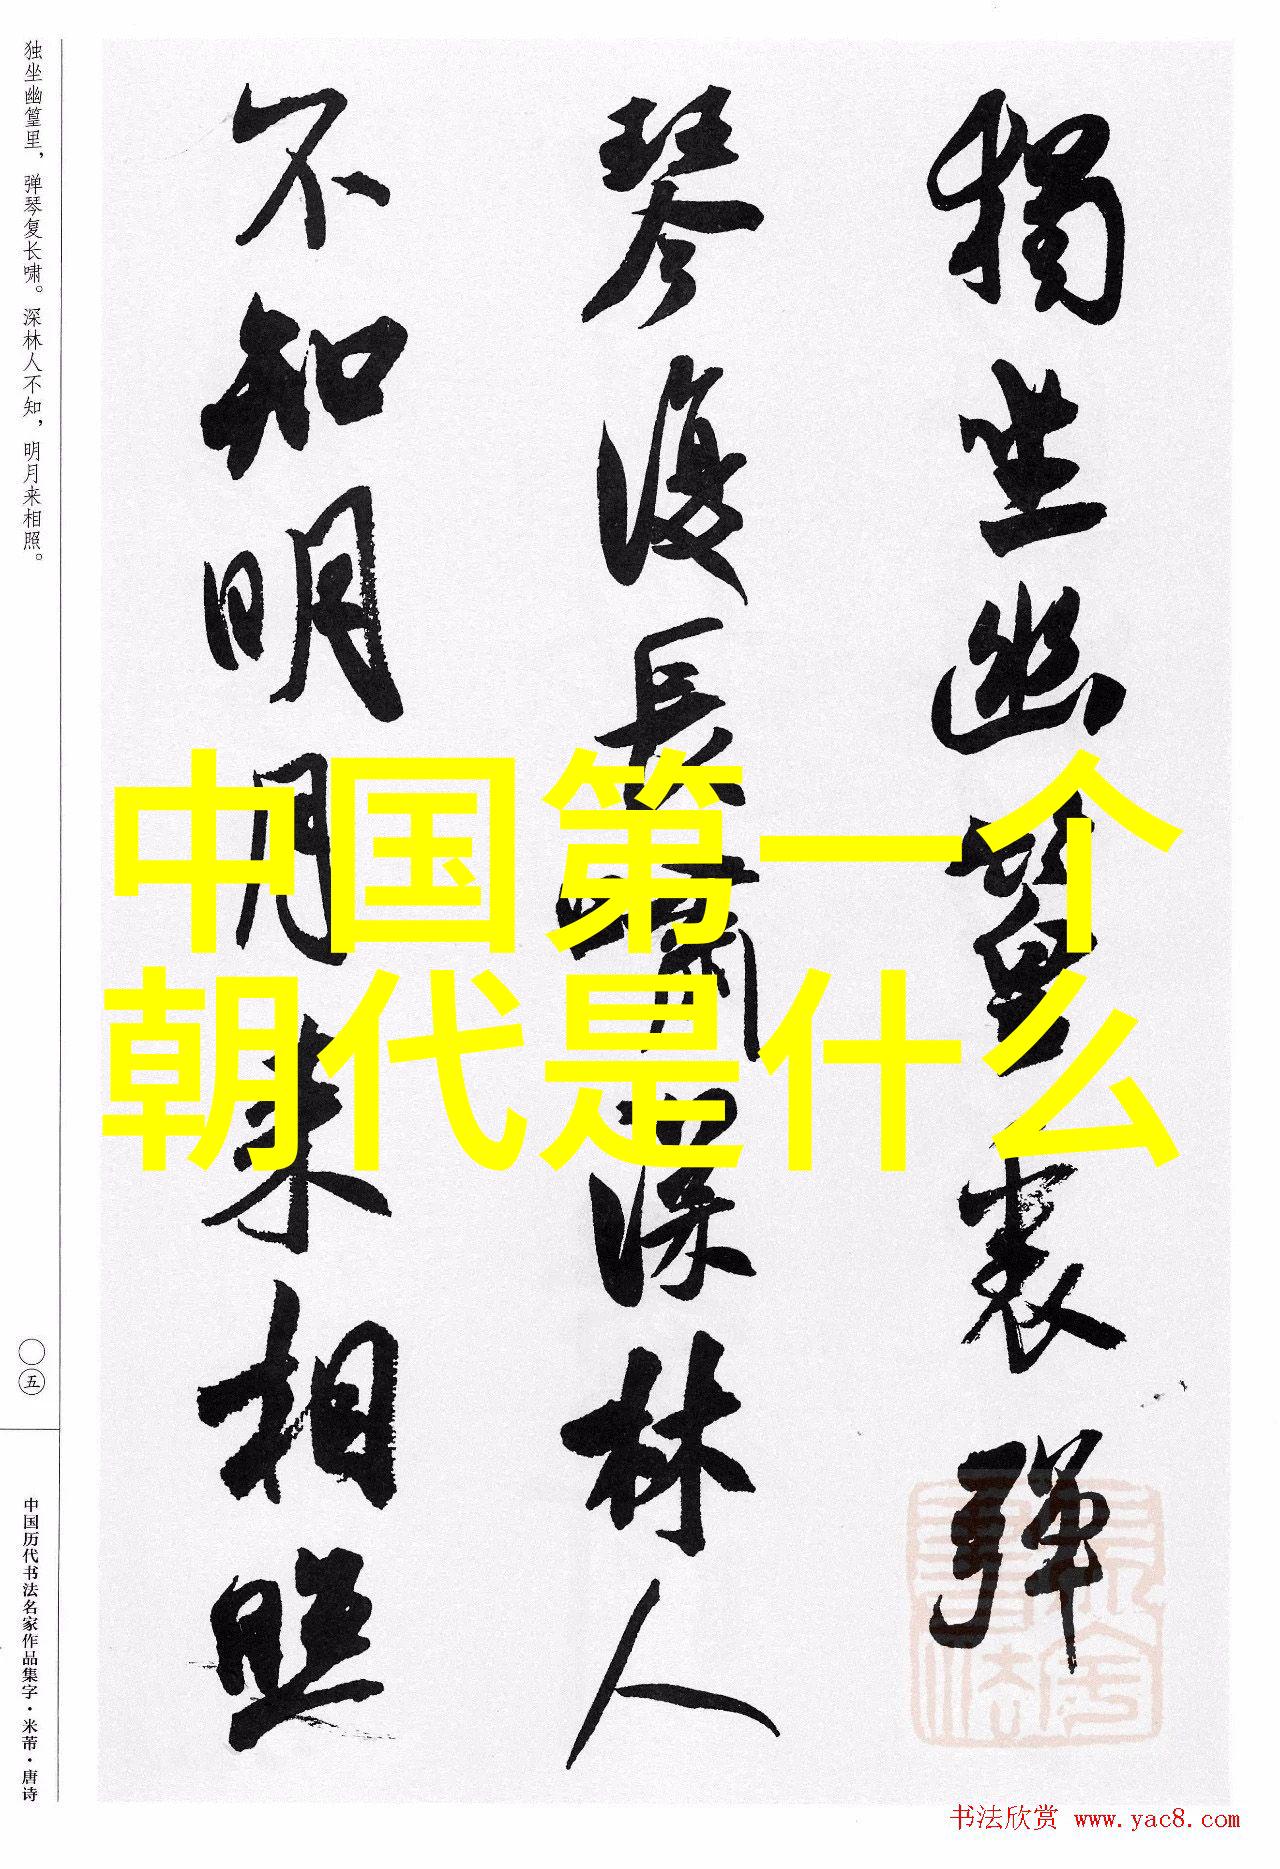 獨坐幽篁裏彈
琴復長嘯深林人
不知明月来相照
中国第一个
朝代是什么
独坐幽篁里，弹琴复长啸。深林人不知，明月来相照。
〇五
中国历代书法名家作品集字·米芾·唐诗
书法欣赏 www.yac8.com